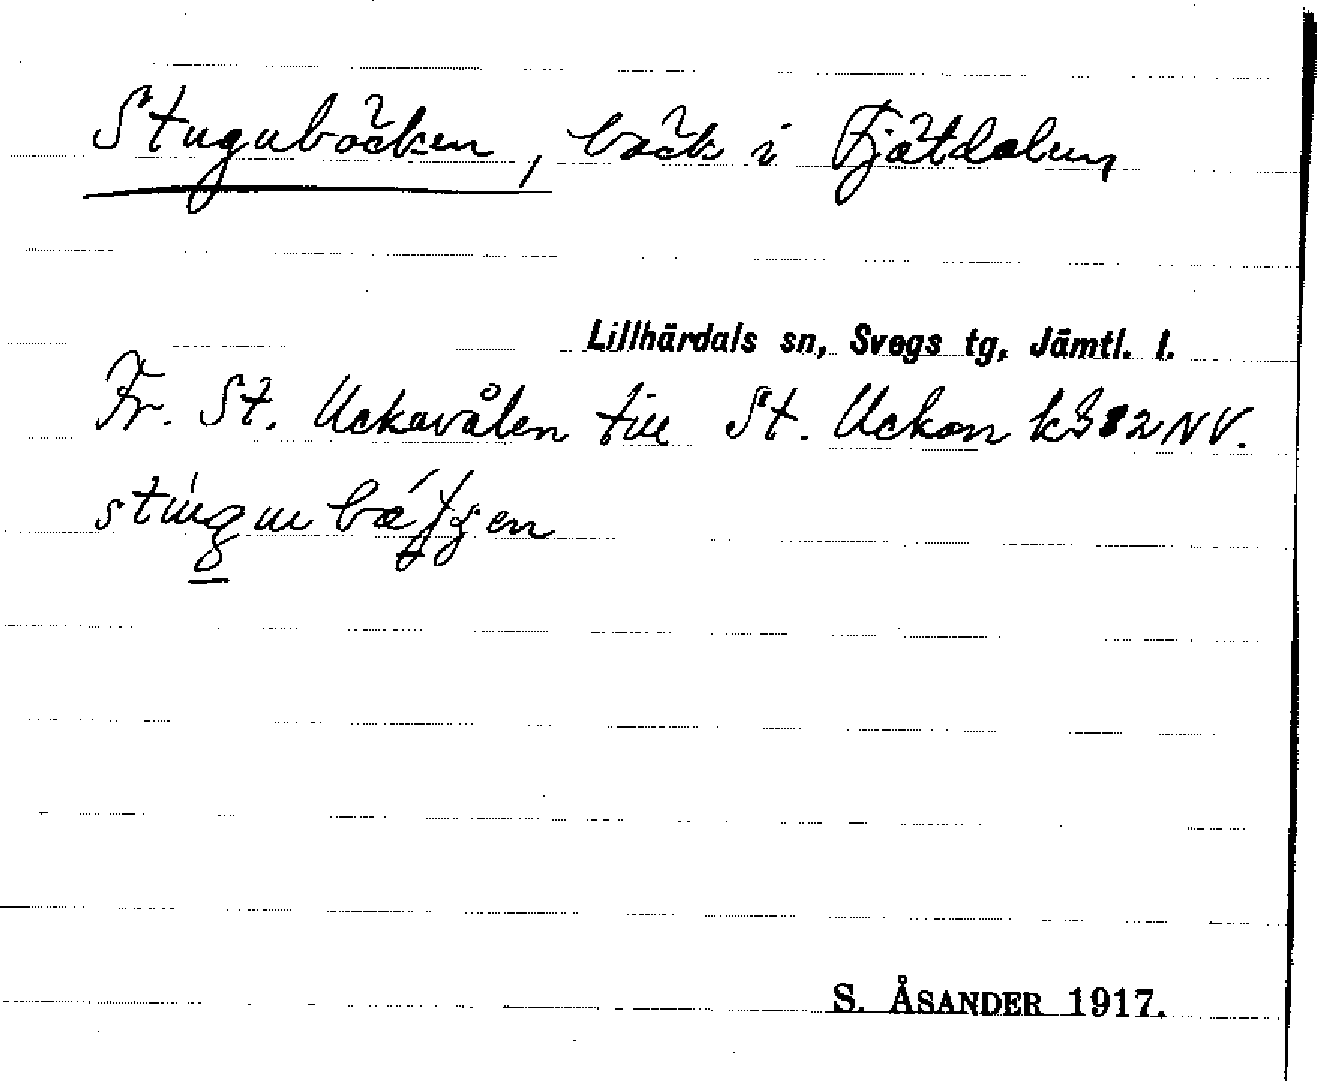 Stugubäcken, bäck i Fjätdalen,
Lillhärdals sn, Svegs tg, Jämtl. l.
Fr. St. Uckavålen till St. Uckon k 82 NV.
S. ÅSANDER 1917.